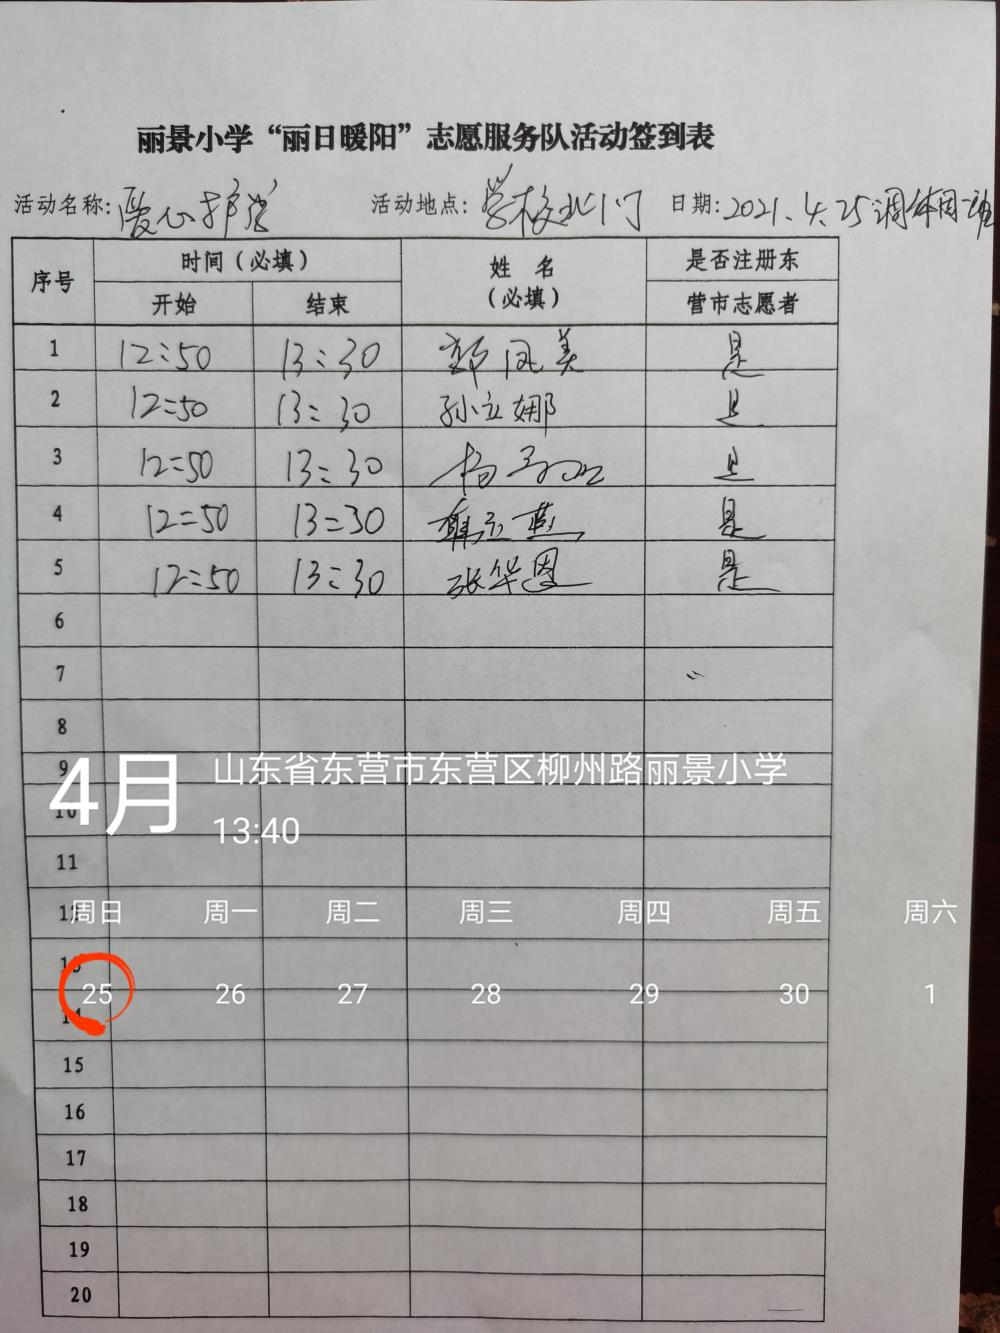 丽景小学“丽日暖阳”志愿服务队活动签到表
活动名称:爱心护学 活动地点:学校北门 日期:2021.4.25调休周一班
序号 时间(必填) 姓名(必填) 是否注册东营市志愿者
开始 结束
1 12:50 13:30 郭凤美 是
2 12:50 13:30 孙立娜 是
3 12:50 13:30 杨 是
4 12:50 13:30 韩立燕 是
5 12:50 13:30 张华恩 是
6
7
8
9
10
11
12
13
14
15
16
17
18
19
20
4月 山东省东营市东营区柳州路丽景小学
13:40
周日 周一 周二 周三 周四 周五 周六
25 26 27 28 29 30 1